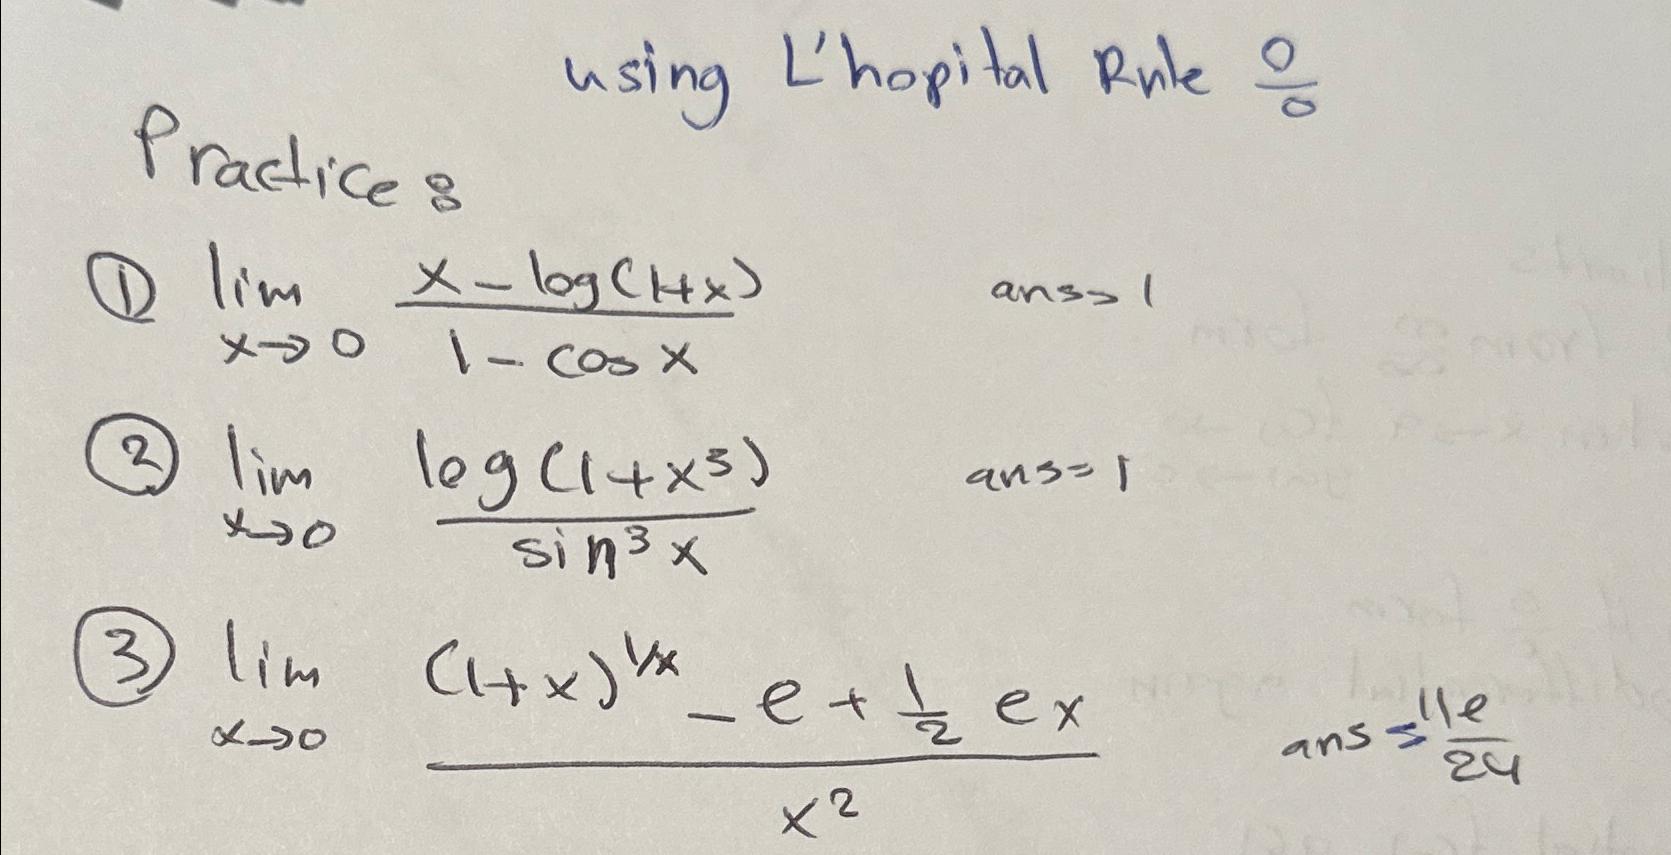 using L'hopital Rule 0/0
Practice:
① lim x→0 (x - log(1+x))/(1 - cos x) ans=1
② lim x→0 log(1+x³)/sin³x ans=1
③ lim x→0 ((1+x)^1/x - e + 1/2 ex)/x² ans=11e/24